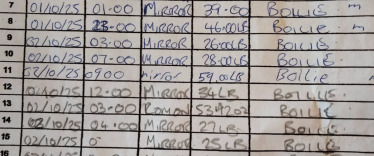 7 01/10/25 01.00 MIRROR 39.00 BOILIE "
8 01/10/25 23.00 MIRROR 46.00LB Boilie "
9 02/10/25 03.00 MIRROR 26.00LB BOILIE
10 02/10/25 07.00 MIRROR 28.00LB BOILIE
11 02/10/25 0900 mirror 59.00LB Boilie "
12 12.00 MIRROR 34LB BOILIE
13 02/10/25 03.00 BOILIE
14 02/10/25 04.00 MIRROR 27LB BOILIE
15 02/10/25 0 MIRROR 25LB BOILIE
16